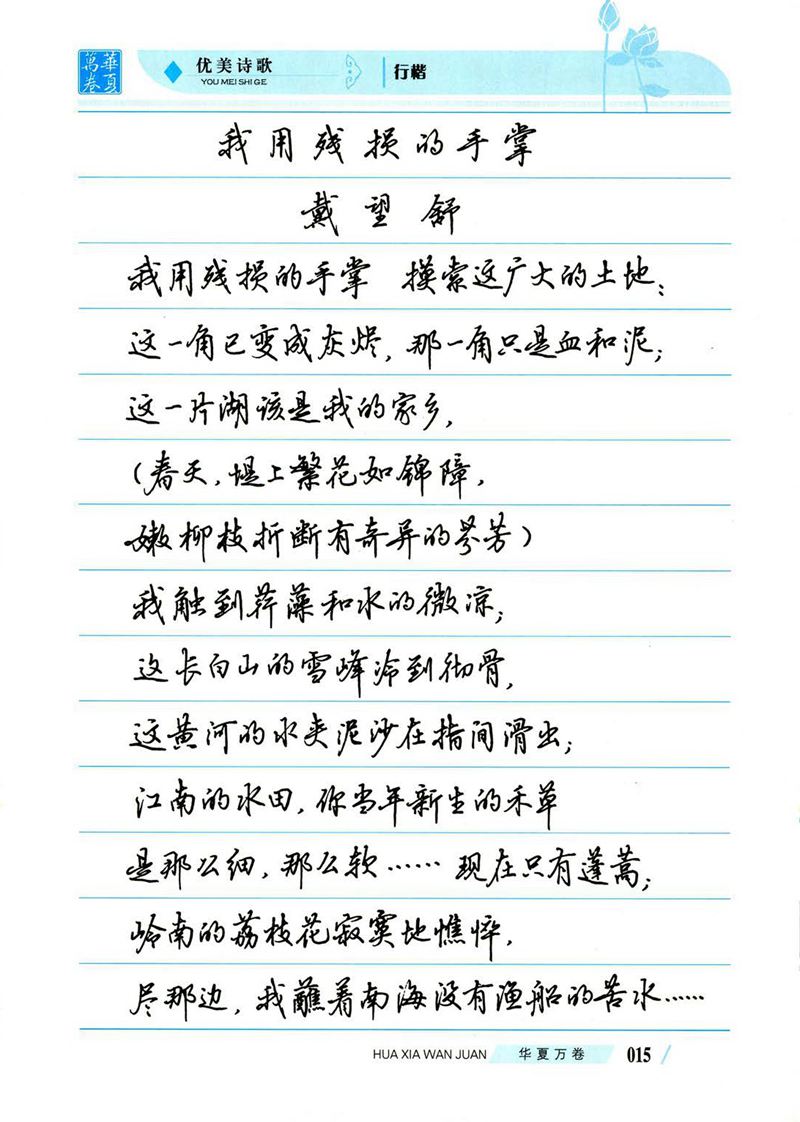 華夏萬卷
优美诗歌
YOU MEI SHI GE
行楷
我用残损的手掌
戴望舒
我用残损的手掌 摸索这广大的土地：
这一角已变成灰烬，那一角只是血和泥；
这一片湖该是我的家乡，
（春天，堤上繁花如锦障，
嫩柳枝折断有奇异的芬芳）
我触到荇藻和水的微凉；
这长白山的雪峰冷到彻骨，
这黄河的水夹泥沙在指间滑出；
江南的水田，你当年新生的禾草
是那么细，那么软…… 现在只有蓬蒿；
岭南的荔枝花寂寞地憔悴，
尽那边，我蘸着南海没有渔船的苦水……
HUA XIA WAN JUAN 华夏万卷 015